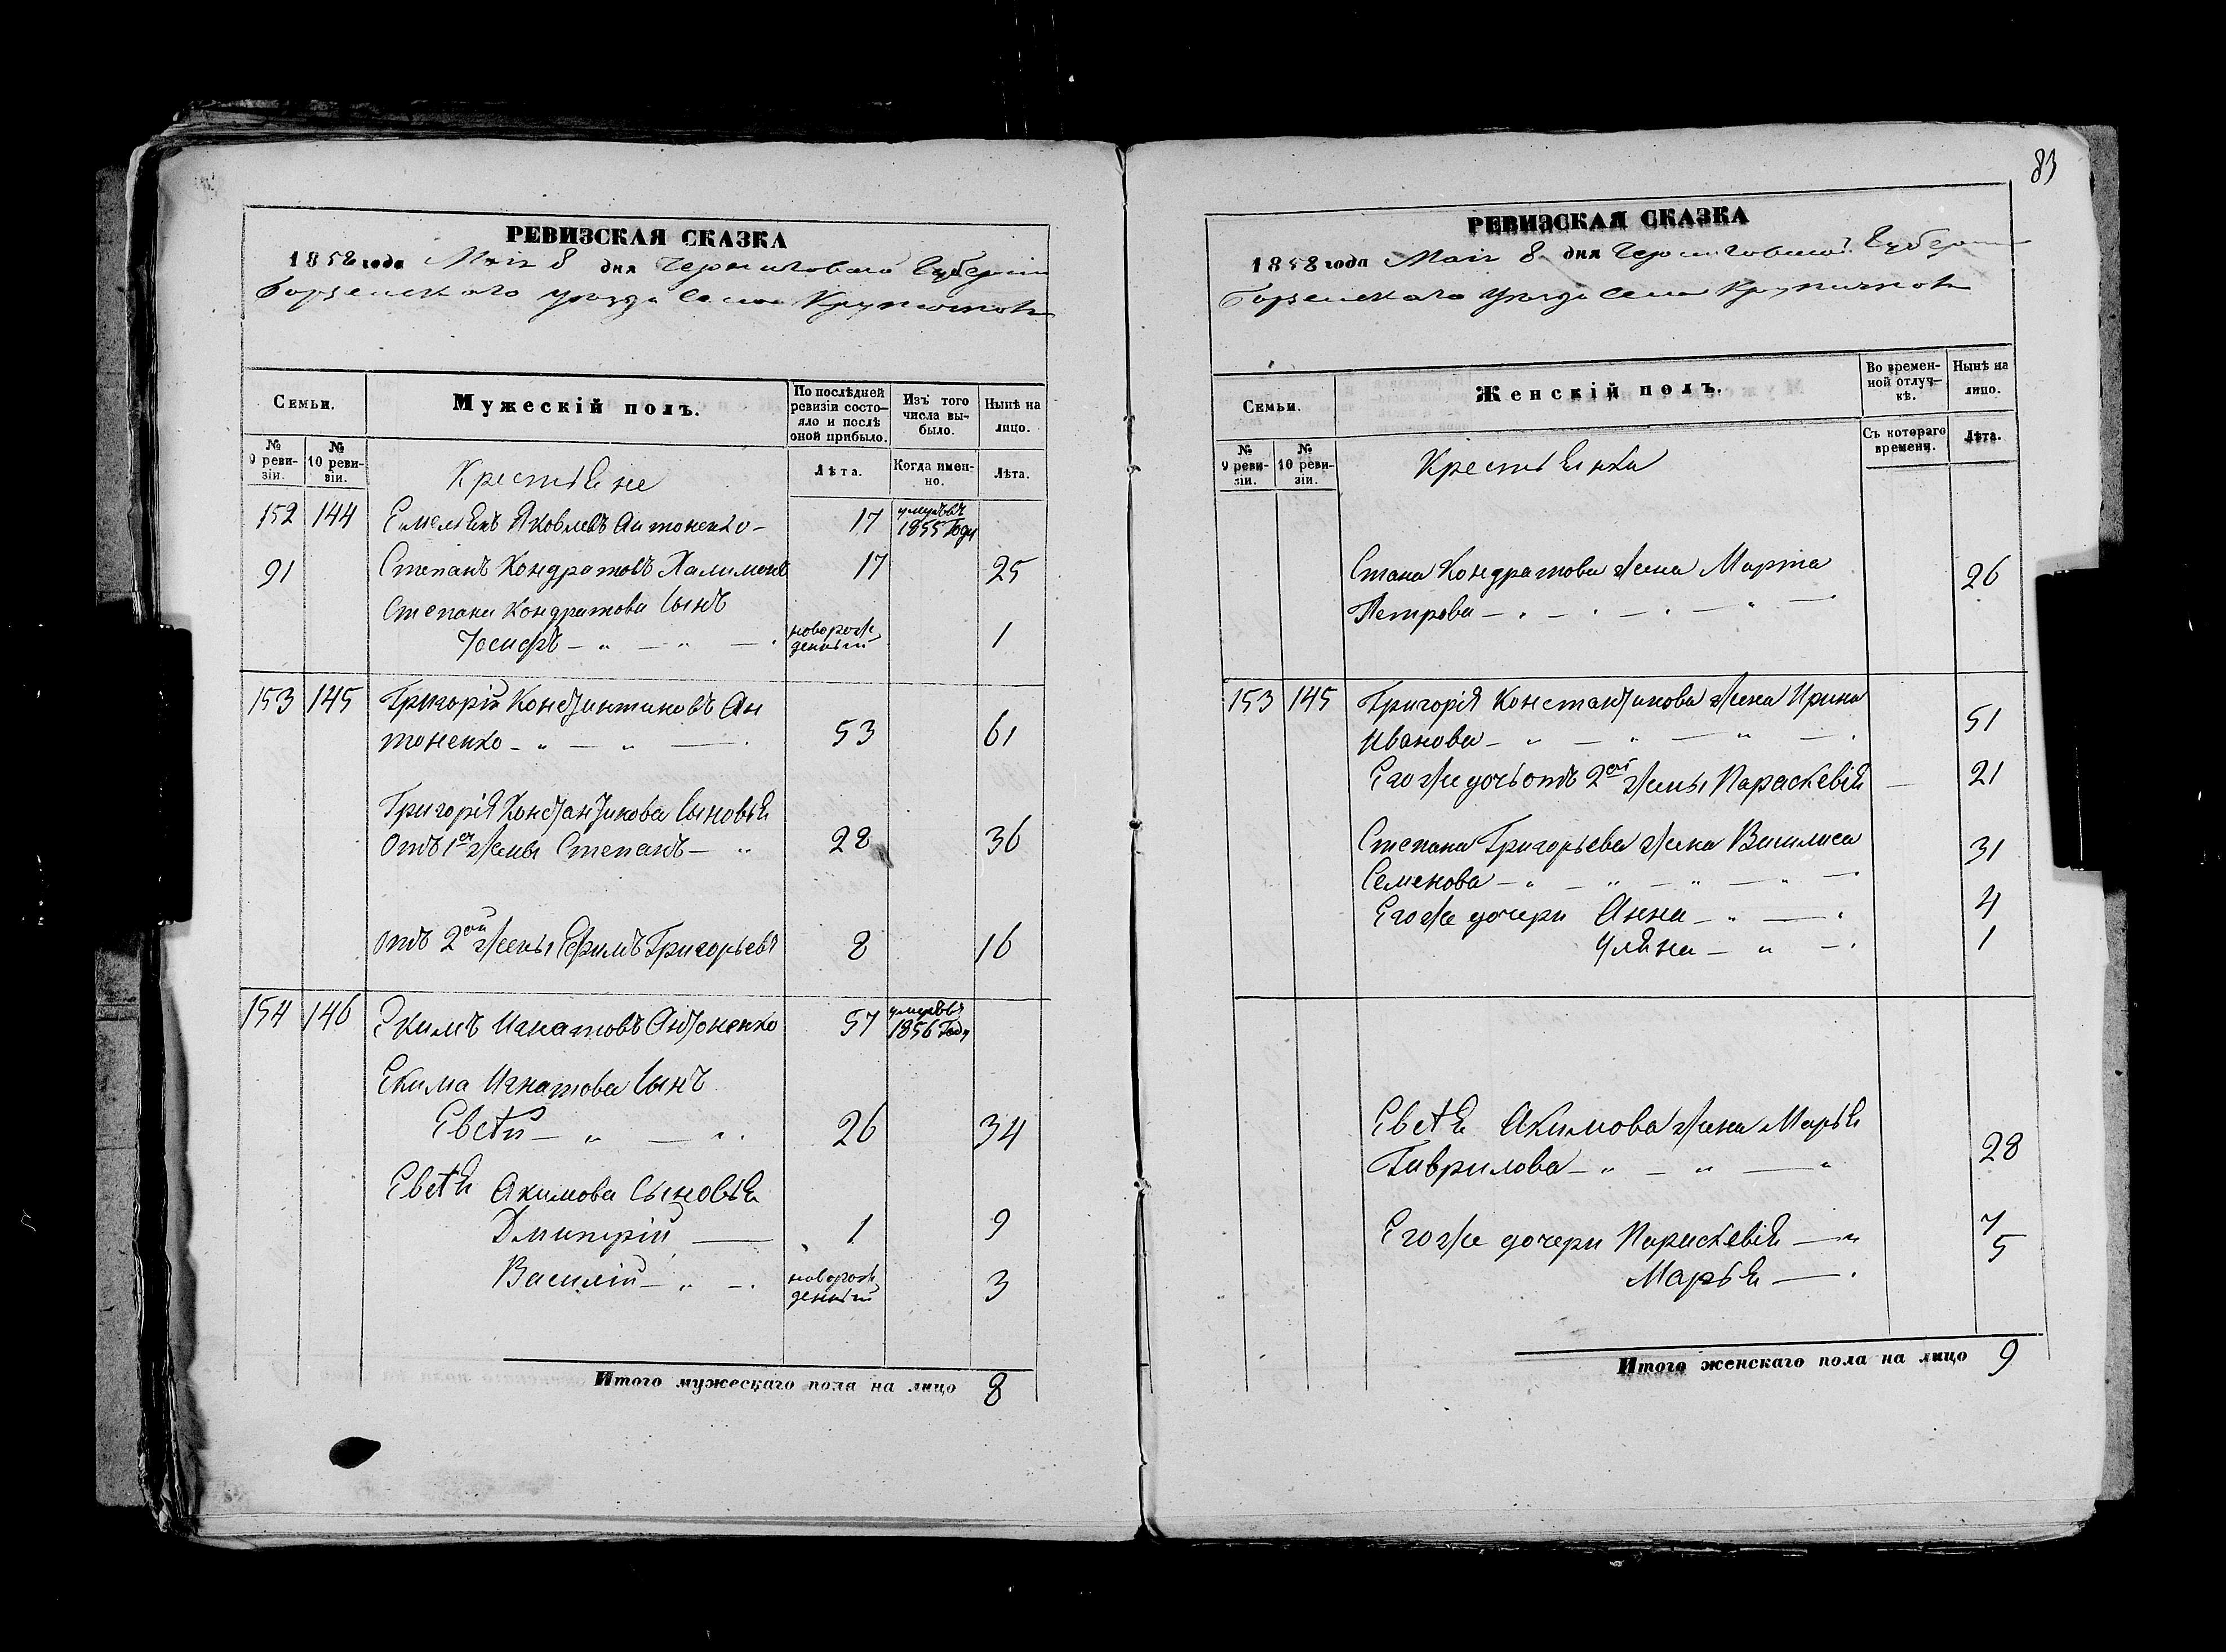 РЕВИЗСКАЯ СКАЗКА
1858 года Маія 8 дня Черниговской Губерніи
Борзенского уезда села Крупичполя
Семьи.
Мужескій полъ.
По послѣдней ревизіи состо-
яло и послѣ оной прибыло.
Изъ того числа вы-
было.
Нынѣ на лицо.
№ 9 реви-
зіи.
№ 10 реви-
зіи.
Лѣта.
Когда имен-
но.
Лѣта.
Крестьяне
152 144 Емельянъ Яковлевъ Антоненко - 17 умеръ въ 1855 Году
91 Степанъ Кондратовъ Халимонъ 17 25
Степана Кондратова Сынъ
Іосифъ - " - " - новорож
денный 1
153 145 Григорій Константиновъ Ан
тоненко - " - " - 53 61
Григорія Константинова Сыновья
Отъ 1ой жены Степанъ - " 28 36
Отъ 2ой жены Ефимъ Григорьевъ 8 16
154 146 Екимъ Игнатовъ Антоненко 57 умеръ въ 1856 Году
Екима Игнатова Сынъ
Евстѣй - " - " 26 34
Евстѣя Акимова Сыновья
Дмитрій - 1 9
Василій - " - новорож
денный 3
Итого мужескаго пола на лицо 8
83
РЕВИЗСКАЯ СКАЗКА
1858 года Маія 8 дня Черниговской Губерніи
Борзенского уезда села Крупичполя
Семьи.
Женскій полъ.
Во времен-
ной отлуч-
кѣ.
Нынѣ на лицо.
№ 9 реви-
зіи.
№ 10 реви-
зіи.
Съ котораго времени.
Лѣта.
Крестьянки
Стапа Кондратова жена Марта
Петрова - " - " - " - 26
153 145 Григорія Константинова жена Ирина
Иванова - " - " - " - 51
Егоже дочь отъ 2ой жены Параскевія - 21
Степана Григорьева жена Василиса
Семенова - " - " - " - 31
Егоже дочери Анна - " - 4
Уляна - " - 1
Евстѣя Акимова жена Марья
Гаврилова - " - " - " 28
Егоже дочери Параскевія - " 7
Марья - 5
Итого женскаго пола на лицо 9